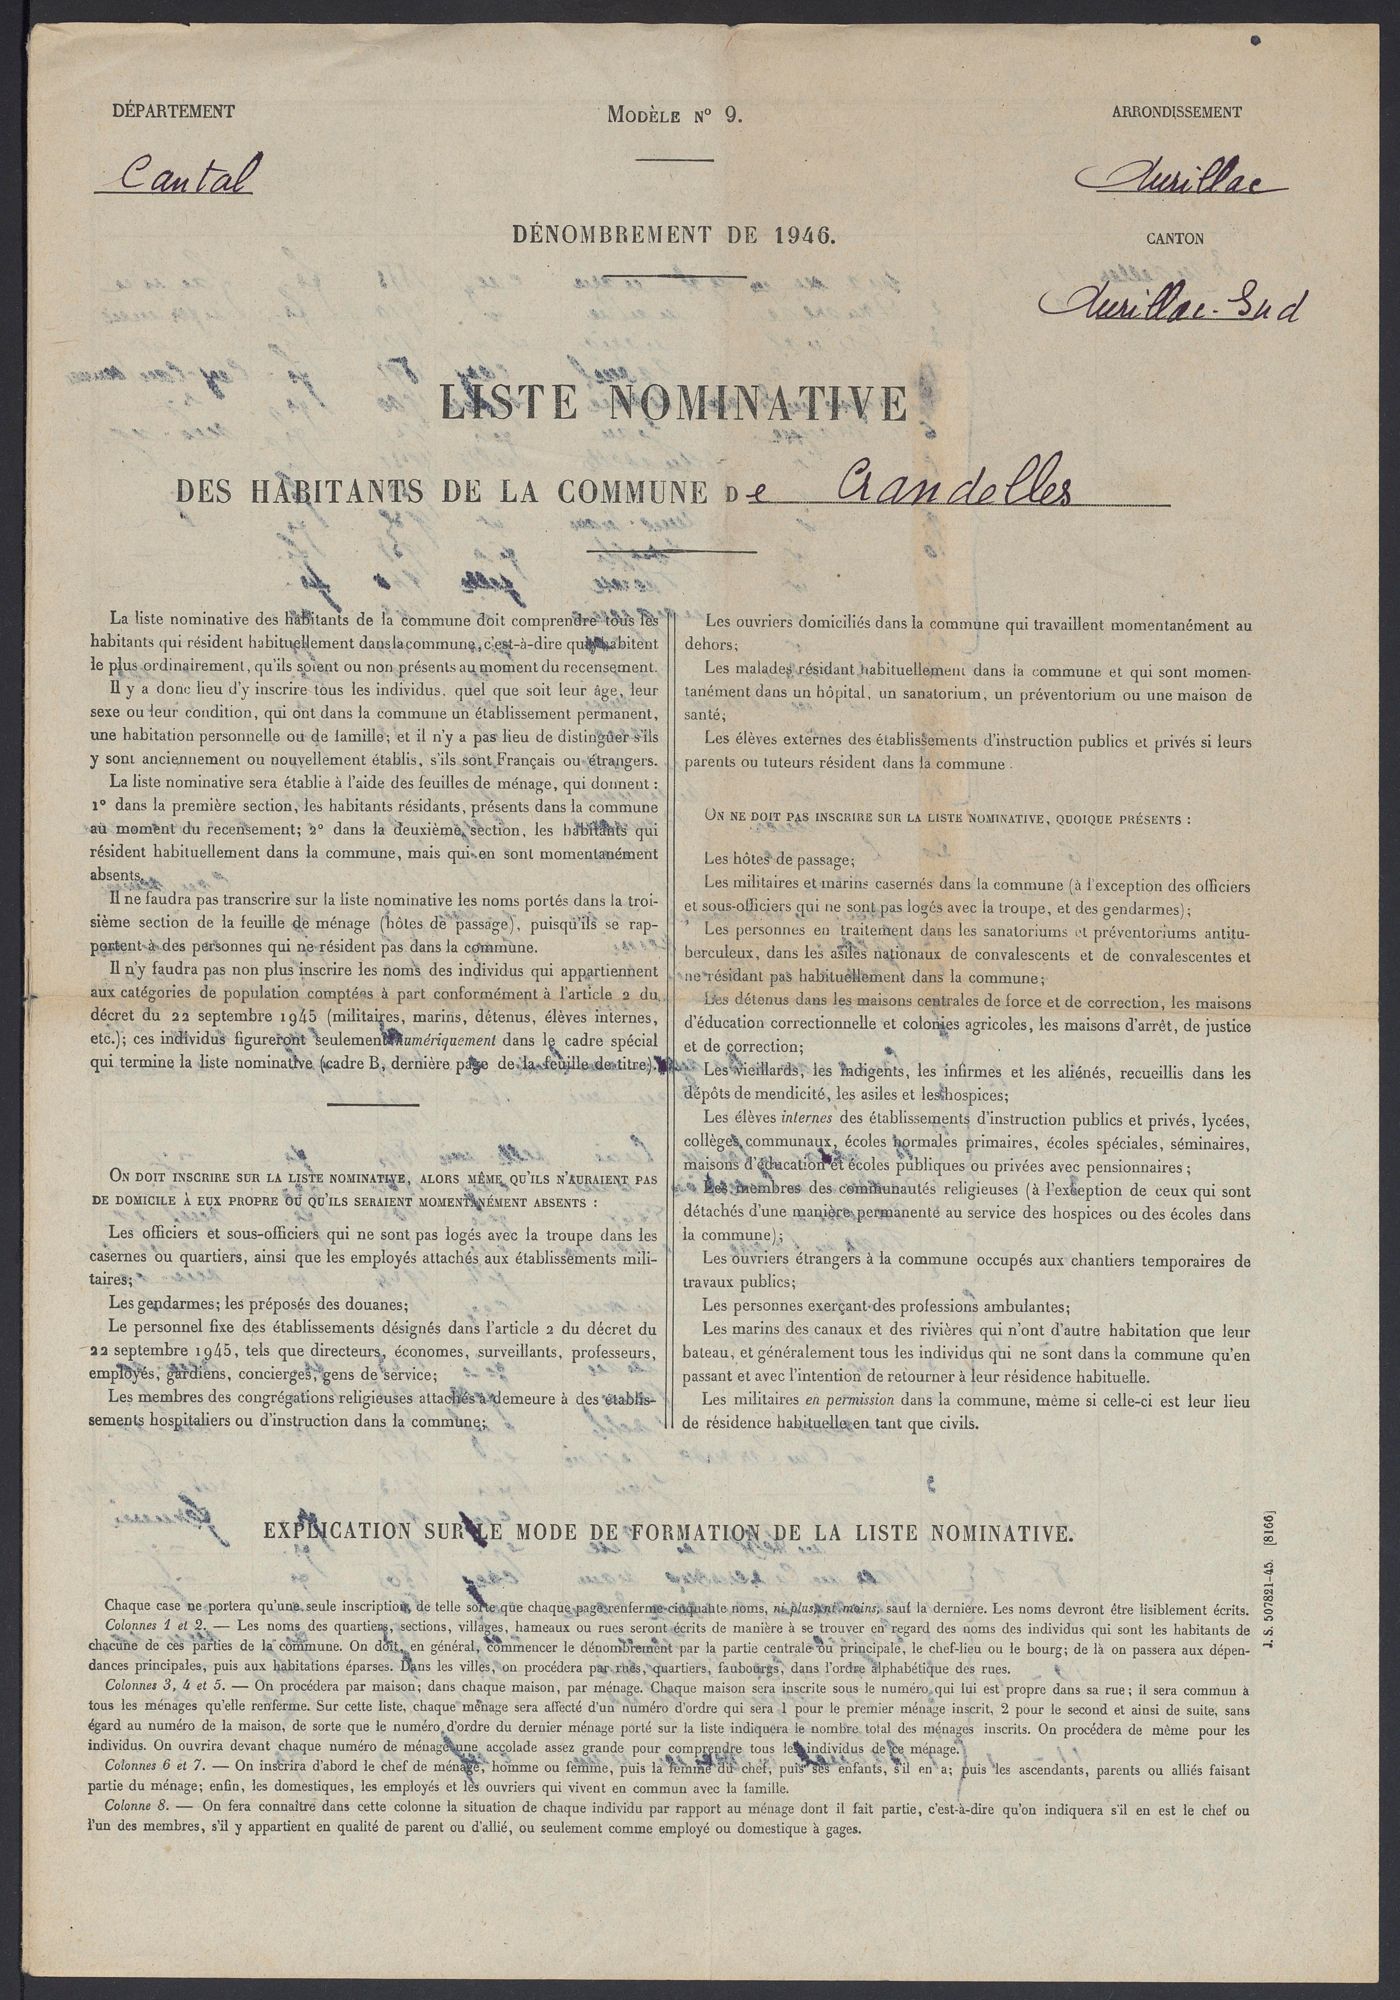 DÉPARTEMENT
Modèle N° 9.
ARRONDISSEMENT
Cantal
Aurillac
DÉNOMBREMENT DE 1946.
CANTON
Aurillac-Sud
LISTE NOMINATIVE
DES HABITANTS DE LA COMMUNE De Crandelles
La liste nominative des habitants de la commune doit comprendre tous les
habitants qui résident habituellement dans la commune, c'est-à-dire qui y habitent
le plus ordinairement, qu'ils soient ou non présents au moment du recensement.
Il y a donc lieu d'y inscrire tous les individus, quel que soit leur âge, leur
sexe ou leur condition, qui ont dans la commune un établissement permanent,
une habitation personnelle ou de famille; et il n'y a pas lieu de distinguer s'ils
y sont anciennement ou nouvellement établis, s'ils sont Français ou étrangers.
La liste nominative sera établie à l'aide des feuilles de ménage, qui donnent :
1° dans la première section, les habitants résidants, présents dans la commune
au moment du recensement; 2° dans la deuxième section, les habitants qui
résident habituellement dans la commune, mais qui en sont momentanément
absents.
Il ne faudra pas transcrire sur la liste nominative les noms portés dans la troi-
sième section de la feuille de ménage (hôtes de passage), puisqu'ils se rap-
portent à des personnes qui ne résident pas dans la commune.
Il n'y faudra pas non plus inscrire les noms des individus qui appartiennent
aux catégories de population comptées à part conformément à l'article 2 du
décret du 22 septembre 1945 (militaires, marins, détenus, élèves internes,
etc.); ces individus figureront seulement numériquement dans le cadre spécial
qui termine la liste nominative (cadre B, dernière page de la feuille de titre).
On doit inscrire sur la liste nominative, alors même qu'ils n'auraient pas
de domicile à eux propre ou qu'ils seraient momentanément absents :
Les officiers et sous-officiers qui ne sont pas logés avec la troupe dans les
casernes ou quartiers, ainsi que les employés attachés aux établissements mili-
taires;
Les gendarmes; les préposés des douanes;
Le personnel fixe des établissements désignés dans l'article 2 du décret du
22 septembre 1945, tels que directeurs, économes, surveillants, professeurs,
employés, gardiens, concierges, gens de service;
Les membres des congrégations religieuses attachés à demeure à des établis-
sements hospitaliers ou d'instruction dans la commune;
Les ouvriers domiciliés dans la commune qui travaillent momentanément au
dehors;
Les malades résidant habituellement dans la commune et qui sont momen-
tanément dans un hôpital, un sanatorium, un préventorium ou une maison de
santé;
Les élèves externes des établissements d'instruction publics et privés si leurs
parents ou tuteurs résident dans la commune.
On ne doit pas inscrire sur la liste nominative, quoique présents :
Les hôtes de passage;
Les militaires et marins casernés dans la commune (à l'exception des officiers
et sous-officiers qui ne sont pas logés avec la troupe, et des gendarmes);
Les personnes en traitement dans les sanatoriums et préventoriums antitu-
berculeux, dans les asiles nationaux de convalescents et de convalescentes et
ne résidant pas habituellement dans la commune;
Les détenus dans les maisons centrales de force et de correction, les maisons
d'éducation correctionnelle et colonies agricoles, les maisons d'arrêt, de justice
et de correction;
Les vieillards, les indigents, les infirmes et les aliénés, recueillis dans les
dépôts de mendicité, les asiles et les hospices;
Les élèves internes des établissements d'instruction publics et privés, lycées,
collèges communaux, écoles normales primaires, écoles spéciales, séminaires,
maisons d'éducation et écoles publiques ou privées avec pensionnaires;
Les membres des communautés religieuses (à l'exception de ceux qui sont
détachés d'une manière permanente au service des hospices ou des écoles dans
la commune);
Les ouvriers étrangers à la commune occupés aux chantiers temporaires de
travaux publics;
Les personnes exerçant des professions ambulantes;
Les marins des canaux et des rivières qui n'ont d'autre habitation que leur
bateau, et généralement tous les individus qui ne sont dans la commune qu'en
passant et avec l'intention de retourner à leur résidence habituelle.
Les militaires en permission dans la commune, même si celle-ci est leur lieu
de résidence habituelle en tant que civils.
EXPLICATION SUR LE MODE DE FORMATION DE LA LISTE NOMINATIVE.
Chaque case ne portera qu'une seule inscription, de telle sorte que chaque page renferme cinquante noms, ni plus, ni moins, sauf la dernière. Les noms devront être lisiblement écrits.
Colonnes 1 et 2. — Les noms des quartiers, sections, villages, hameaux ou rues seront écrits de manière à se trouver en regard des noms des individus qui sont les habitants de
chacune de ces parties de la commune. On doit, en général, commencer le dénombrement par la partie centrale ou principale, le chef-lieu ou le bourg; de là on passera aux dépen-
dances principales, puis aux habitations éparses. Dans les villes, on procédera par rues, quartiers, faubourgs, dans l'ordre alphabétique des rues.
Colonnes 3, 4 et 5. — On procédera par maison; dans chaque maison, par ménage. Chaque maison sera inscrite sous le numéro qui lui est propre dans sa rue; il sera commun à
tous les ménages qu'elle renferme. Sur cette liste, chaque ménage sera affecté d'un numéro d'ordre qui sera 1 pour le premier ménage inscrit, 2 pour le second et ainsi de suite, sans
égard au numéro de la maison, de sorte que le numéro d'ordre du dernier ménage porté sur la liste indiquera le nombre total des ménages inscrits. On procédera de même pour les
individus. On ouvrira devant chaque numéro de ménage une accolade assez grande pour comprendre tous les individus de ce ménage.
Colonnes 6 et 7. — On inscrira d'abord le chef de ménage, homme ou femme, puis la femme du chef, puis ses enfants, s'il en a; puis les ascendants, parents ou alliés faisant
partie du ménage; enfin, les domestiques, les employés et les ouvriers qui vivent en commun avec la famille.
Colonne 8. — On fera connaître dans cette colonne la situation de chaque individu par rapport au ménage dont il fait partie, c'est-à-dire qu'on indiquera s'il en est le chef ou
l'un des membres, s'il y appartient en qualité de parent ou d'allié, ou seulement comme employé ou domestique à gages.
J. S. 507821-45. [8166]